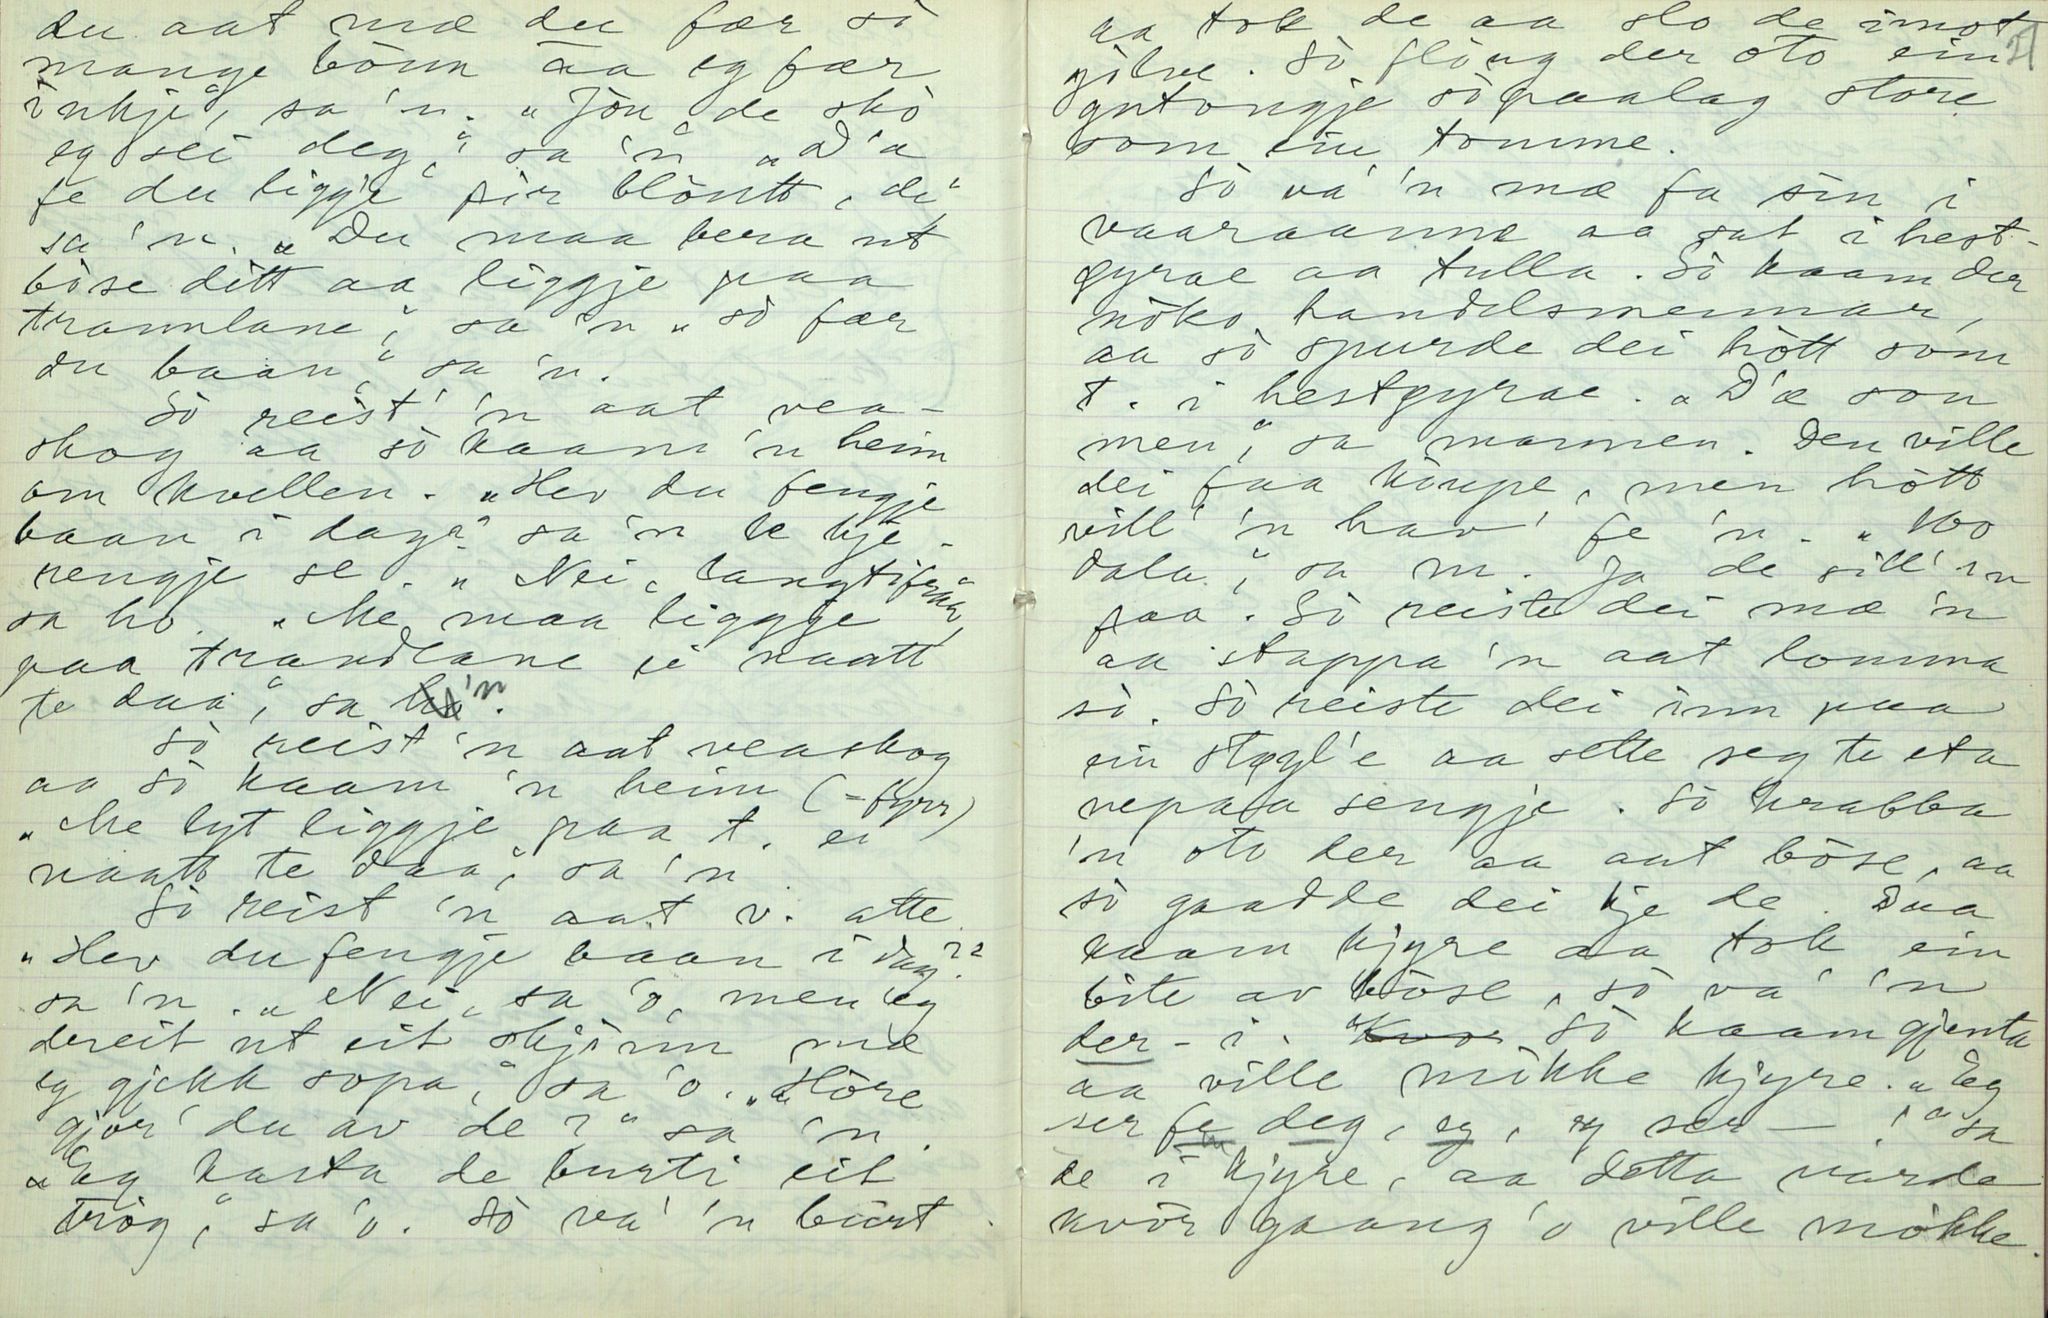 du aat mæ du fær sò
mange bònn aa eg fær
inkje", sa 'n. „Jòu de skò
eg sei deg," sa 'n „D'æ
fe du liggje fir blòutt, di"
sa 'n. „Du maa bera ut
bòse dítt aa liggje paa
tramlane", sa 'n „sò fær
du baan" sa 'n.
Sò reist' 'n aat vea-
skog aa sò kaam 'n heim
om kvellen. „Hev du fengje
baan i dag?" sa 'n te kje-
rengje se. „Nei, langtifraa"
sa ho. „Me maa liggje
paa tramlane ei naatt
te daa", sa 'n.
Sò reist 'n aat veaskog
aa sò kaam 'n heim (= fyrr)
„Me lyt liggje paa t. ei
naatt te daa", sa 'n.
Sò reist 'n aat v. atte.
„Hev du fengje baan i dag?"
sa 'n. „Nei, sa 'o, men eg
dreit ut eit skjinn mæ
eg gjekk sopa," sa 'o. „Hòre
gjor' du av de?" sa 'n.
„Eg kasta de burti eit
tròg," sa 'o. Sò va' 'n bùrt
aa tok de aa slo de imot 21
gòlve. Sò flòug der oto ein
gutongje sò paalag store
som ein tomme.
Sò va' 'n mæ fa sin i
vaaraanne aa sat i hest-
øyrae aa tulla. Sò kaam der
nòko handelsmennar,
aa sò spurde dei hòtt som
t. i hestøyrae. „D'æ son
men", sa mannen. Den ville
dei faa kòupe, men hòtt
vill' 'n hav' fe 'n. „100
dala", sa m. Ja de gill' 'n
paa. Sò reiste dei mæ 'n
aa stappa 'n aat lomma
si. Sò reiste dei inn paa
ein støyl'e aa sette seg te eta
nepaa sengje. Sò krabba
'n oto der aa aat bòse, aa
sò gaadde dei kje de. Daa
kaam kjyre aa tok ein
bite av bòse, sò va' 'n
der-i. Sò kaam gjenta
aa ville mikke kjyre. „Eg
ser fe deg, eg, eg ser — !" sa
de i kjyre, aa detta varde
kvòr gaang 'o ville mòkke.